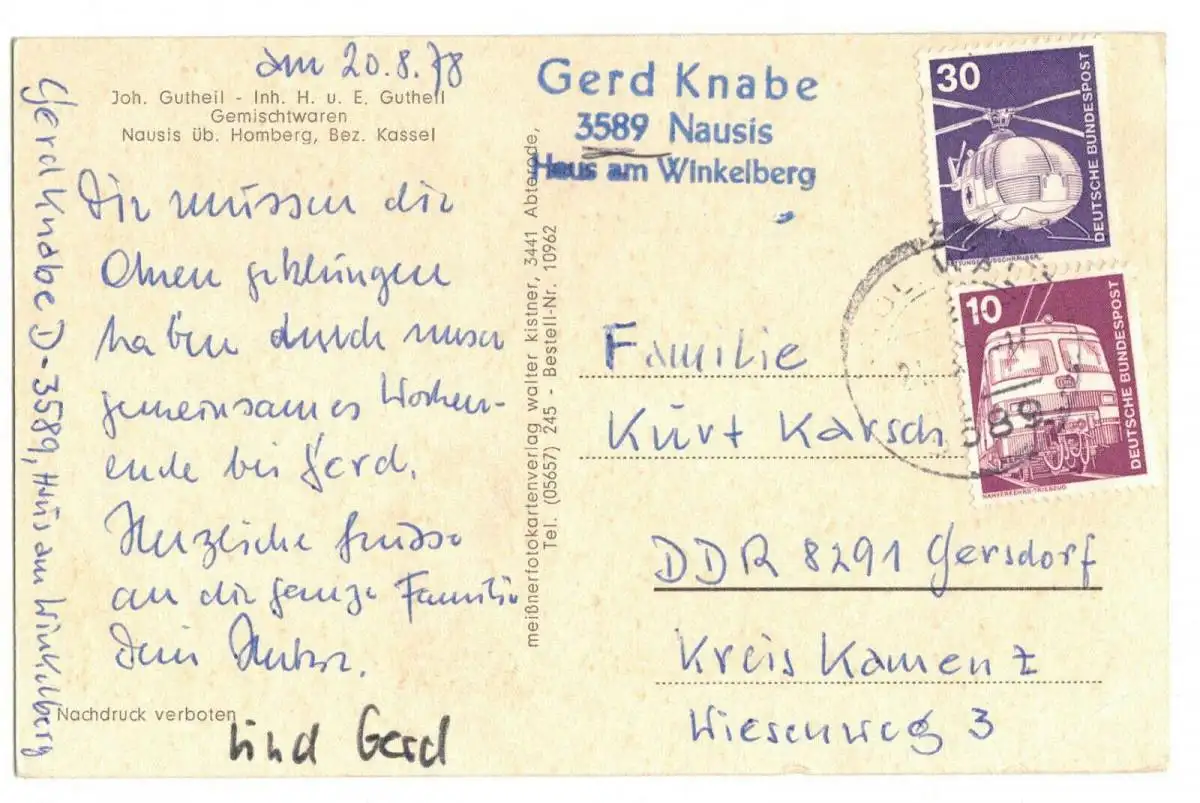 am 20.8.78
Joh. Gutheil - Inh. H. u. E. Gutheil
Gemischtwaren
Nausis üb. Homberg, Bez. Kassel
Dir müssen die
Ohren geklungen
haben durch unser
gemeinsames Wochen-
ende bei Gerd.
Herzliche Grüsse
an die ganze Familie
Dein
und Gerd
Nachdruck verboten
Gerd Knabe D-3589, Haus am Winkelberg
meißnerfotokartenverlag walter kistner, 3441 Abterode,
Tel. (05657) 245 - Bestell-Nr. 10962
Gerd Knabe
3589 Nausis
Haus am Winkelberg
30
DEUTSCHE BUNDESPOST
10
DEUTSCHE BUNDESPOST
NAHVERKEHRS-TRIEBZUG
589
Familie
Kurt Karsch
DDR 8291 Gersdorf
Kreis Kamenz
Wiesenweg 3